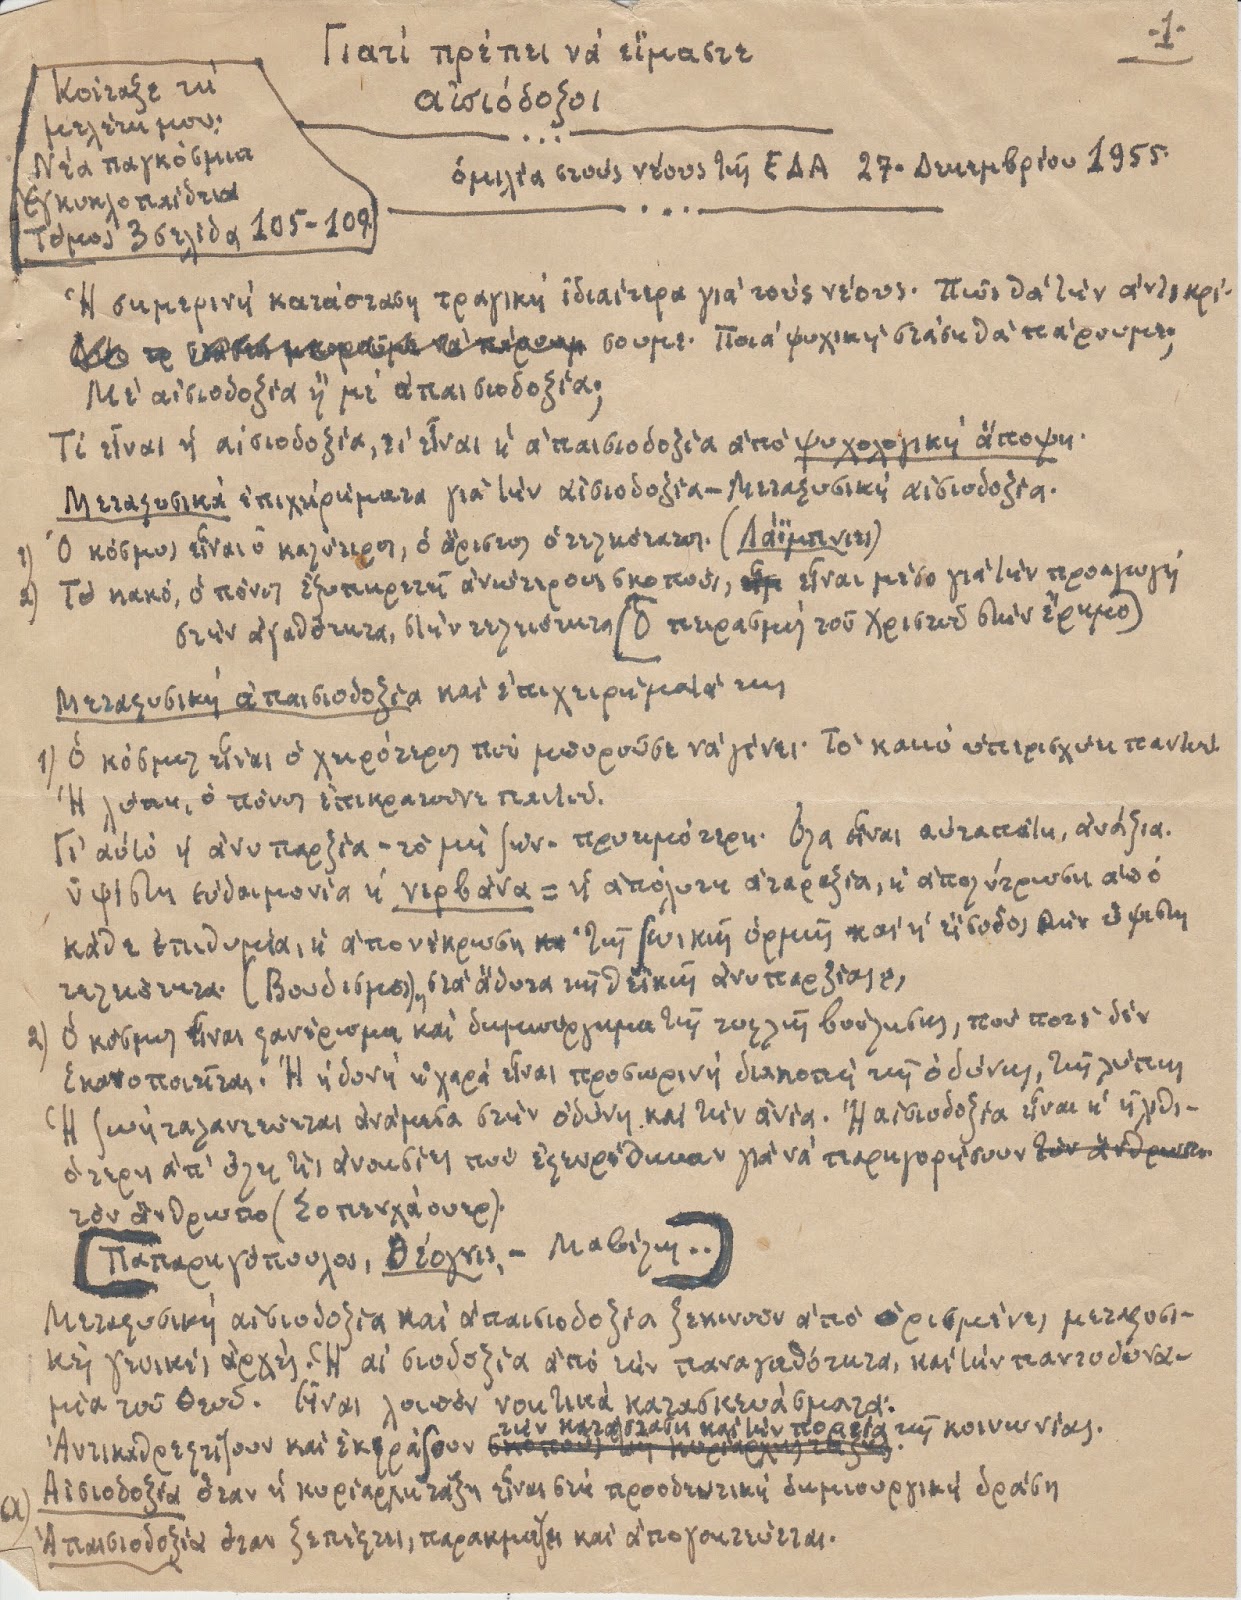 -1-
Γιατί πρέπει νά εἴμαστε
αἰσιόδοξοι
Κοίταξε τή
μελέτη μου:
Νέα παγκόσμια
Ἐγκυκλοπαίδεια
Τόμος 3 σελίδα 105-109
ὁμιλία στούς νέους τῆς ΕΔΑ 27. Δεκεμβρίου 1955.
Ἡ σημερινή κατάσταση τραγική ἰδιαίτερα γιά τούς νέους. Πῶς θά τήν ἀντικρύ-
σουμε. Ποιά ψυχική στάση θά πάρουμε;
Μέ αἰσιοδοξία ἤ μέ ἀπαισιοδοξία;
Τί εἶναι ἡ αἰσιοδοξία, τί εἶναι ἡ ἀπαισιοδοξία ἀπό ψυχολογική ἄποψη.
Μεταφυσικά ἐπιχειρήματα γιά τήν αἰσιοδοξία - Μεταφυσική αἰσιοδοξία.
1) Ὁ κόσμος εἶναι ὁ καλύτερος, ὁ ἄριστος ὁ τελειότατος. (Λάϊμπνιτς)
2) Τό κακό, ὁ πόνος ἐξυπηρετεῖ ἀνώτερους σκοπούς, εἶναι μέσο γιά τήν προαγωγή
στήν ἀγαθότητα, στήν τελειότητα (Ὁ πειρασμός τοῦ Χριστοῦ στήν ἔρημο)
Μεταφυσική ἀπαισιοδοξία καί ἐπιχειρήματά της
1) Ὁ κόσμος εἶναι ὁ χειρότερος πού μποροῦσε νά γίνει. Τό κακό ὑπερισχύει παντοῦ.
Ἡ λύπη, ὁ πόνος ἐπικρατοῦνε παντοῦ.
Γι' αὐτό ἡ ἀνυπαρξία - τό μή ζῶν - προτιμότερη. Ὅλα εἶναι αὐταπάτη, ἀνάξια.
ὕψιστη εὐδαιμονία ἡ νερβάνα = ἡ ἀπόλυτη ἀταραξία, ἡ ἀπολύτρωση ἀπό
κάθε ἐπιθυμία, ἡ ἀπονέκρωση τῆς ζωικῆς ὁρμῆς καί ἡ εἴσοδος στήν ὕψιστη
τελειότητα. (Βουδισμός) στά ἄδυτα τῆς θεϊκῆς ἀνυπαρξίας,
2) Ὁ κόσμος εἶναι φανέρωμα καί δημιούργημα τῆς τυφλῆς βούλησης, πού ποτέ δέν
ἱκανοποιεῖται. Ἡ ἡδονή ἡ χαρά εἶναι προσωρινή διακοπή τῆς ὀδύνης, τῆς λύπης
Ἡ ζωή ταλαντεύεται ἀνάμεσα στήν ὀδύνη καί τήν ἀνία. Ἡ αἰσιοδοξία εἶναι ἡ ἠλιθι-
ότερη ἀπ' ὅλες τίς ἀνοησίες πού ἐξευρέθηκαν γιά νά παρηγορήσουν
τόν ἄνθρωπο (Σοπενχάουερ).
[Παπαρηγόπουλος, Θέογνις, - Μαβίλης..]
Μεταφυσική αἰσιοδοξία καί ἀπαισιοδοξία ξεκινοῦν ἀπό ὁρισμένες μεταφυσι-
κές γενικές ἀρχές. Ἡ αἰσιοδοξία ἀπό τήν παναγαθότητα, καί τήν παντοδυνα-
μία τοῦ Θεοῦ. Εἶναι λοιπόν νοητικά κατασκευάσματα.
τήν κατάσταση καί τήν πορεία
Ἀντικαθρεφτίζουν καί ἐκφράζουν τῆς κοινωνίας.
α) Αἰσιοδοξία ὅταν ἡ κυρίαρχη τάξη εἶναι στή προοδευτική δημιουργική δράση
Ἀπαισιοδοξία ὅταν ξεπέφτει, παρακμάζει καί ἀπογοητεύεται.